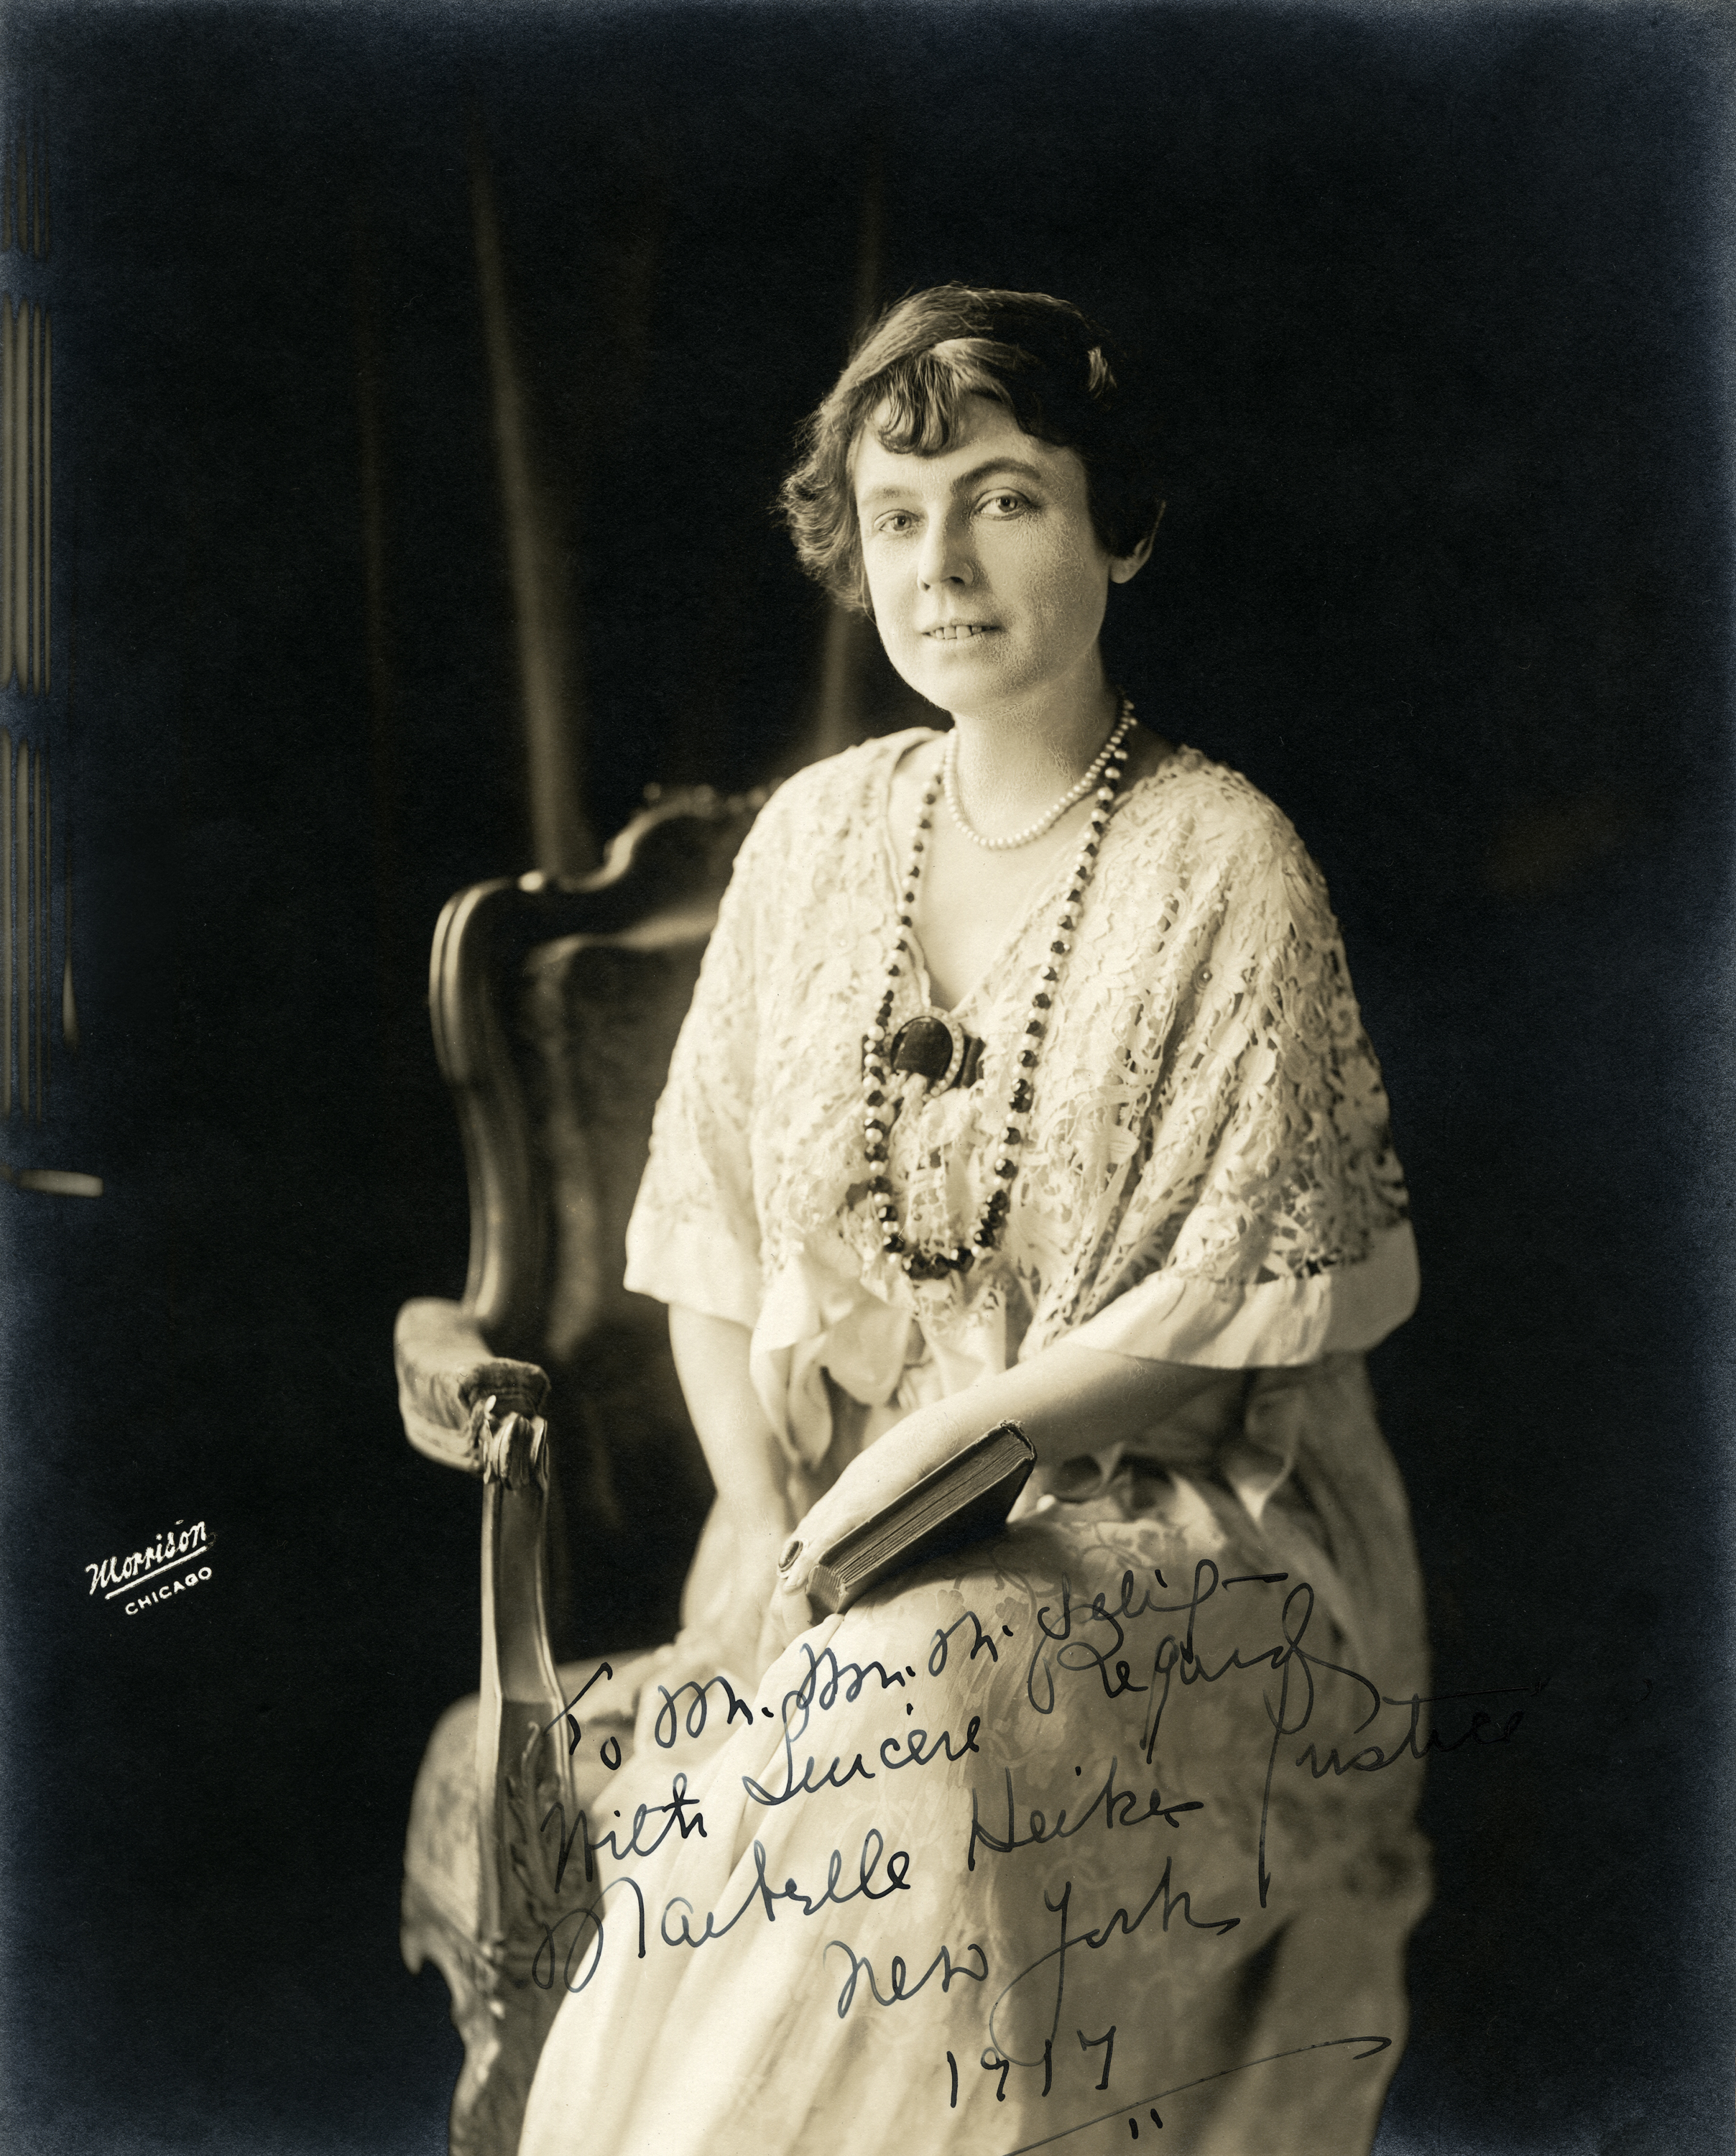 Morrison
CHICAGO
To Mr. Wm. N. Selig—
With Sincere Regard
Maibelle Heikes Justice
New York
1917